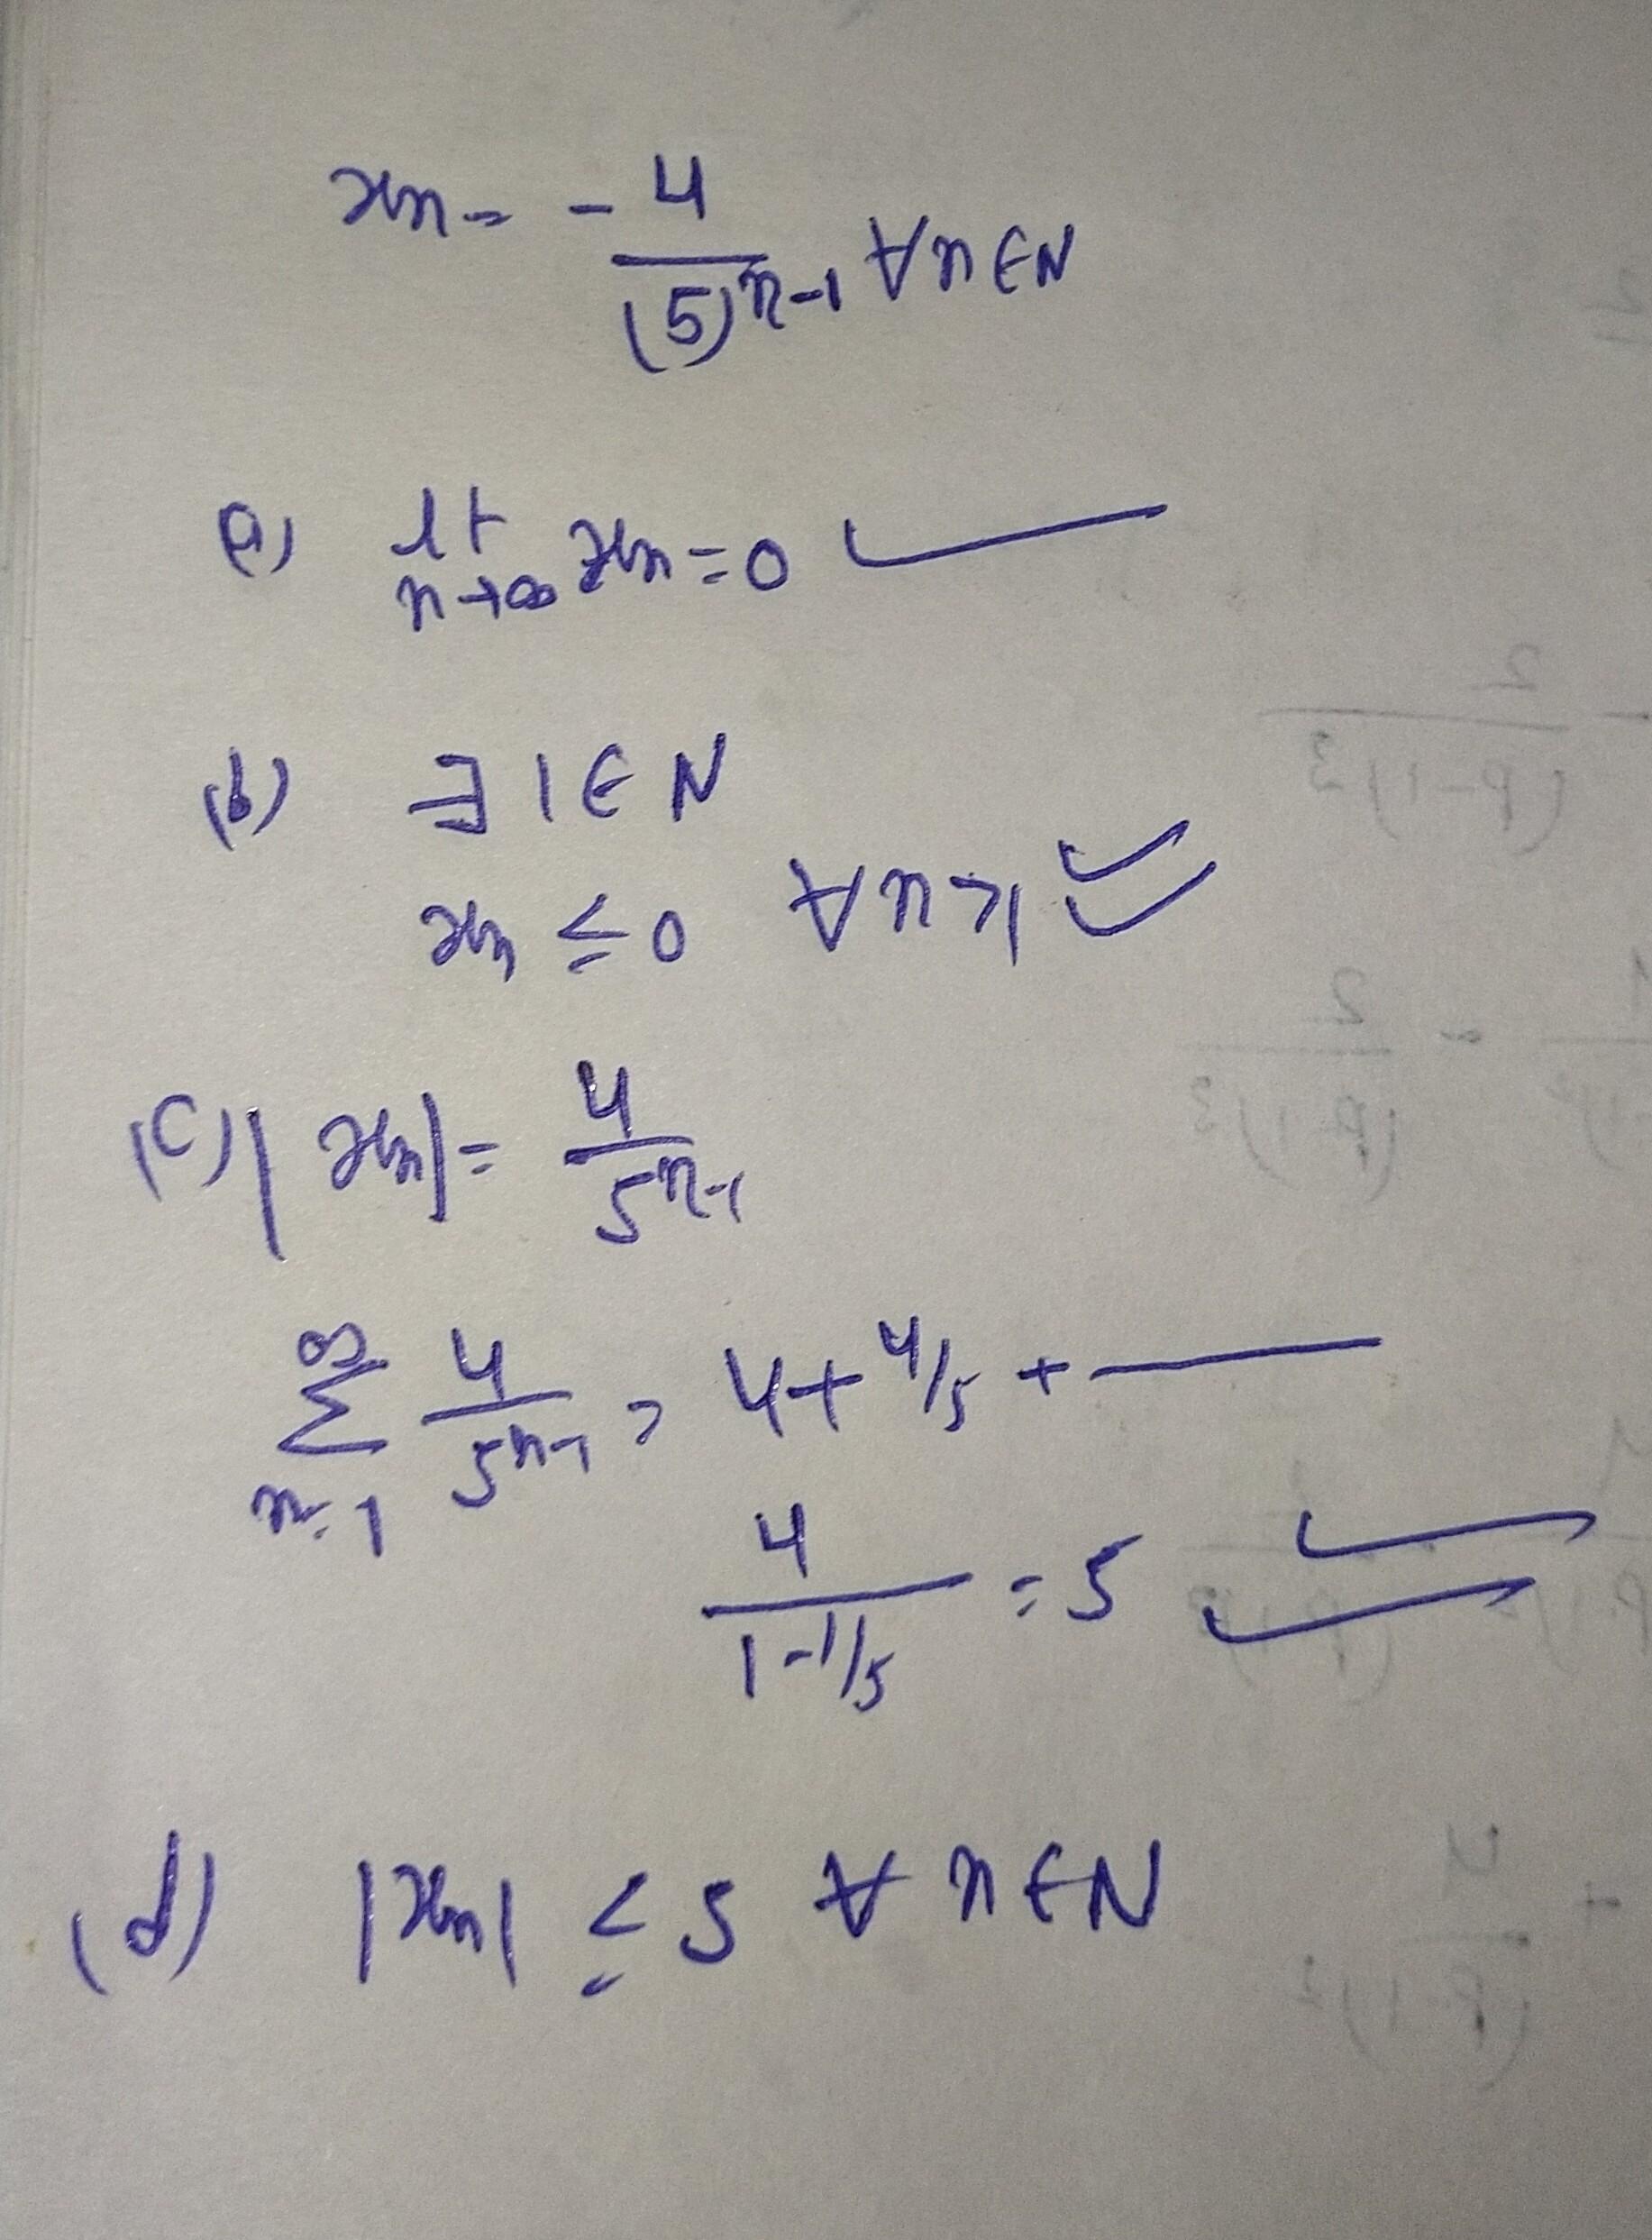 xn = - 4/(5)^n-1 ∀ n ∈ N
(a) lt n→∞ xn = 0
(b) ∃ 1 ∈ N
xn ≤ 0 ∀ n ≥ 1
(c) |xn| = 4/5^n-1
∞ Σ n=1 4/5^n-1 = 4 + 4/5 + —
4/1-1/5 = 5
(d) |xn| ≤ 5 ∀ n ∈ N